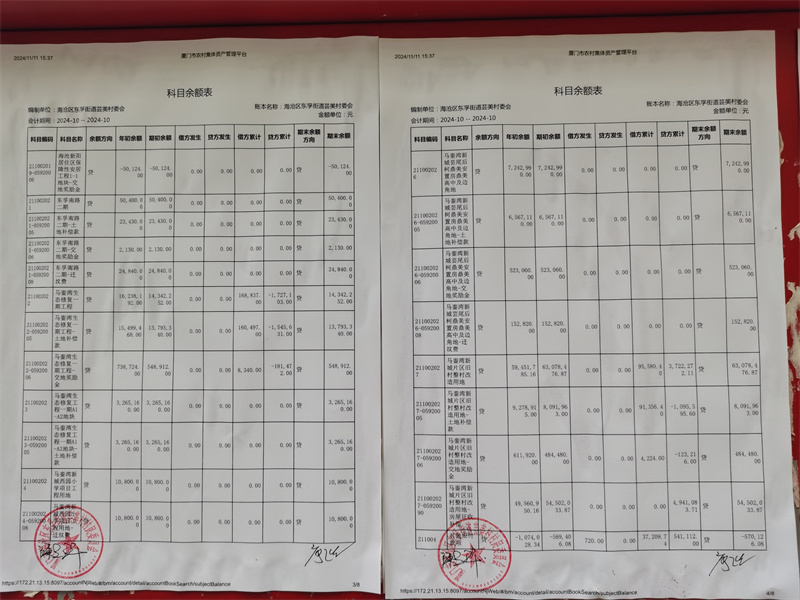 2024/11/11 15:37
厦门市农村集体资产管理平台
科目余额表
编制单位：海沧区东孚街道芸美村委会
账本名称：海沧区东孚街道芸美村委会
会计期间：2024-10 -- 2024-10
金额单位：元
科目编码 科目名称 余额方向 年初余额 期初余额 借方发生 贷方发生 借方累计 贷方累计 期末余额方向 期末余额
贷 -50,124.00 -50,124.00 0.00 0.00 0.00 0.00 贷 -50,124.00
东孚南路二期 贷 50,400.00 50,400.00 0.00 0.00 0.00 0.00 贷 50,400.00
东孚南路二期-土地补偿款 贷 23,430.00 23,430.00 0.00 0.00 0.00 0.00 贷 23,430.00
东孚南路二期-交地奖励金 贷 2,130.00 2,130.00 0.00 0.00 0.00 0.00 贷 2,130.00
东孚南路二期-迁坟费 贷 24,840.00 24,840.00 0.00 0.00 0.00 0.00 贷 24,840.00
马銮湾生态修复一期工程 贷 16,238,192.00 14,342,252.00 0.00 0.00 168,837.00 -1,727,103.00 贷 14,342,252.00
马銮湾生态修复一期工程-土地补偿款 贷 15,499,468.00 13,793,340.00 0.00 0.00 160,497.00 -1,545,631.00 贷 13,793,340.00
马銮湾生态修复一期工程-交地奖励金 贷 738,724.00 548,912.00 0.00 0.00 8,340.00 -181,472.00 贷 548,912.00
马銮湾生态修复工程一期A1-A2地块 贷 3,265,160.00 3,265,160.00 0.00 0.00 0.00 0.00 贷 3,265,160.00
马銮湾生态修复工程一期A1-A2地块-土地补偿款 贷 3,265,160.00 3,265,160.00 0.00 0.00 0.00 0.00 贷 3,265,160.00
马銮湾新城西园小学项目工程用地 贷 10,800.00 10,800.00 0.00 0.00 0.00 0.00 贷 10,800.00
贷 10,800.00 10,800.00 0.00 0.00 0.00 0.00 贷 10,800.00
https://172.21.13.15:8097/accountNjWeb/#/bm/account/detail/accountBookSearch/subjectBalance
3/8
2024/11/11 15:37
厦门市农村集体资产管理平台
科目余额表
编制单位：海沧区东孚街道芸美村委会
账本名称：海沧区东孚街道芸美村委会
会计期间：2024-10 -- 2024-10
金额单位：元
科目编码 科目名称 余额方向 年初余额 期初余额 借方发生 贷方发生 借方累计 贷方累计 期末余额方向 期末余额
211002026 马銮湾新城芸尾后柯鼎美安置房鼎美高中及边角地 贷 7,242,990.00 7,242,990.00 0.00 0.00 0.00 0.00 贷 7,242,990.00
211002026-05920005 马銮湾新城芸尾后柯鼎美安置房鼎美高中及边角地-土地补偿款 贷 6,567,110.00 6,567,110.00 0.00 0.00 0.00 0.00 贷 6,567,110.00
211002026-05920006 马銮湾新城芸尾后柯鼎美安置房鼎美高中及边角地-交地奖励金 贷 523,060.00 523,060.00 0.00 0.00 0.00 0.00 贷 523,060.00
211002026-05920008 马銮湾新城芸尾后柯鼎美安置房鼎美高中及边角地-迁坟费 贷 152,820.00 152,820.00 0.00 0.00 0.00 0.00 贷 152,820.00
211002027 马銮湾新城片区旧村整村改造用地 贷 59,451,785.16 63,078,476.87 0.00 0.00 95,580.40 3,722,272.11 贷 63,078,476.87
211002027-05920005 马銮湾新城片区旧村整村改造用地-土地补偿款 贷 9,278,915.00 8,091,963.00 0.00 0.00 91,356.40 -1,095,595.60 贷 8,091,963.00
211002027-05920006 马銮湾新城片区旧村整村改造用地-交地奖励金 贷 611,920.00 484,480.00 0.00 0.00 4,224.00 -123,216.00 贷 484,480.00
211002027-05920090 马銮湾新城片区旧村整村改造用地 贷 49,560,950.16 54,502,033.87 0.00 0.00 0.00 4,941,083.71 贷 54,502,033.87
211004 贷 -1,074,028.34 -569,406.08 720.00 0.00 37,209.74 541,112.00 贷 -570,126.08
https://172.21.13.15:8097/accountNjWeb/#/bm/account/detail/accountBookSearch/subjectBalance
4/8